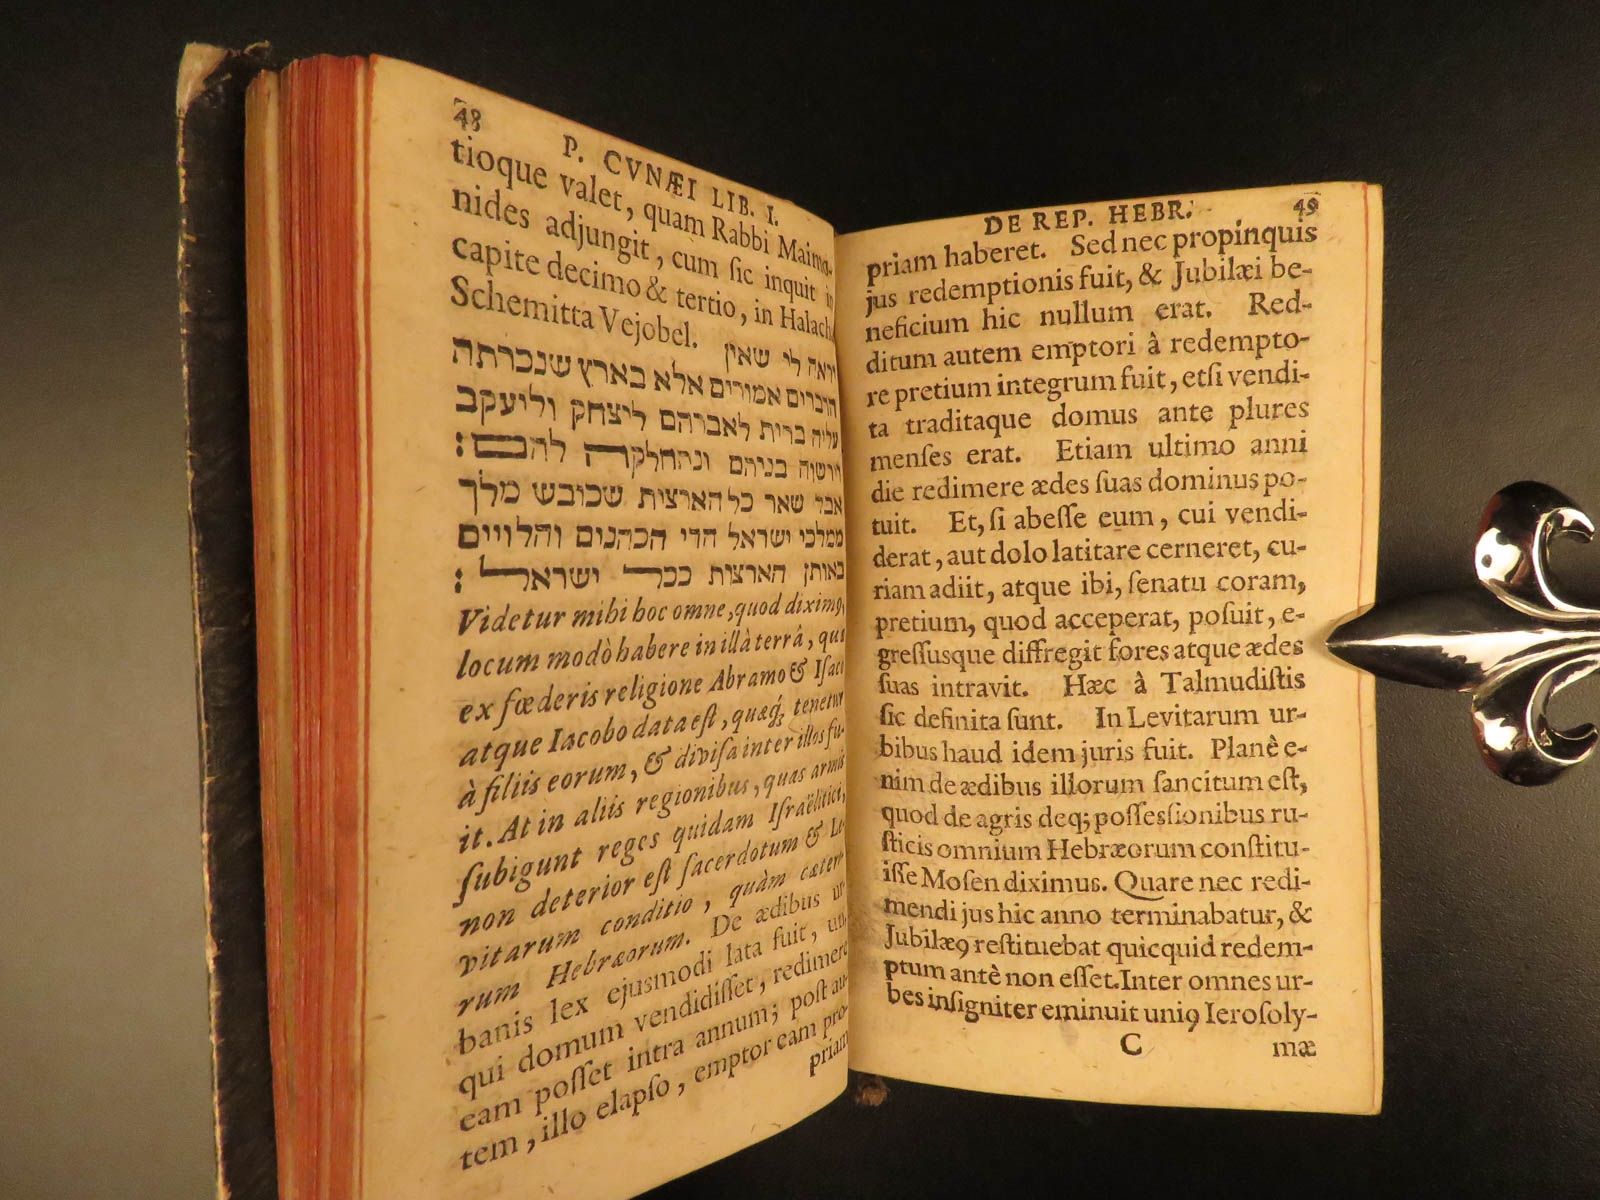 48
P. CVNÆI LIB. I.
tioque valet, quam Rabbi Maimo-
nides adjungit, cum sic inquit in
capite decimo & tertio, in Halach
Schemitta Vejobel. יראה לי שאין
הדברים אמורים אלא בארץ שנכרתה
עליה ברית לאברהם ליצחק וליעקב
וירשוה בניהם ונתחלקה להם:
אבל שאר כל הארצות שכובש מלך
ממלכי ישראל הרי הכהנים והלויים
באותן הארצות ככל ישראל:
Videtur mihi hoc omne, quod diximꝰ,
locum modò habere in illà terrâ, quæ
ex fœderis religione Abramo & Iſaci
atque Iacobo data eſt, quæq; tenetur
à filiis eorum, & diviſa inter illos fu-
it. At in aliis regionibus, quas armis
ſubigunt reges quidam Iſraëlitici,
non deterior eſt ſacerdotum & Le-
vitarum conditio, quàm cætero-
rum Hebræorum. De ædibus ur-
banis lex ejuſmodi lata fuit, uti
qui domum vendidiſſet, redimere
eam poſſet intra annum; poſt au-
tem, illo elapſo, emptor eam pro-
priam
DE REP. HEBR. 49
priam haberet. Sed nec propinquis
jus redemptionis fuit, & Jubilæi be-
neficium hic nullum erat. Red-
ditum autem emptori à redempto-
re pretium integrum fuit, etſi vendi-
ta traditaque domus ante plures
menſes erat. Etiam ultimo anni
die redimere ædes ſuas dominus po-
tuit. Et, ſi abeſſe eum, cui vendi-
derat, aut dolo latitare cerneret, cu-
riam adiit, atque ibi, ſenatu coram,
pretium, quod acceperat, poſuit, e-
greſſusque diffregit fores atque ædes
ſuas intravit. Hæc à Talmudiſtis
ſic definita ſunt. In Levitarum ur-
bibus haud idem juris fuit. Planè e-
nim de ædibus illorum ſancitum eſt,
quod de agris deq; poſſeſſionibus ru-
ſticis omnium Hebræorum conſtitu-
iſſe Moſen diximus. Quare nec redi-
mendi jus hic anno terminabatur, &
Jubilæꝰ reſtituebat quicquid redem-
ptum antè non eſſet. Inter omnes ur-
bes inſigniter eminuit uniꝰ Ieroſoly-
C mæ